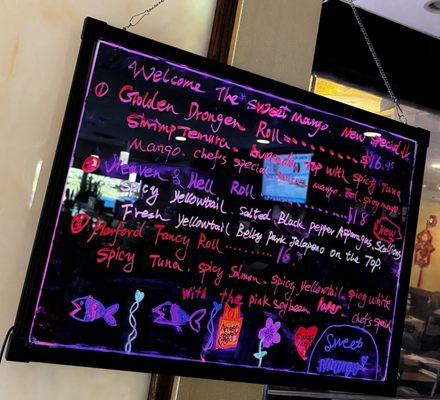 Welcome The Sweet Mango. New Special U.
① Golden Drongen Roll $16.95
Shrimp Temura. Avocado Top with spicy Tuna
Mango. chef's special mango. spicy mayo
② Heaven & Hell Roll $18 New
Spicy Yellowtail. Salted Black pepper Asparagus, Scallions
Fresh Yellowtail Belly Pank Jalapeno on the Top.
③ Harford Fancy Roll
Spicy Tuna. spicy Salmon. spicy yellowtail. spicy white
With the pink soybean Paper. chef's special
Sweet
mango